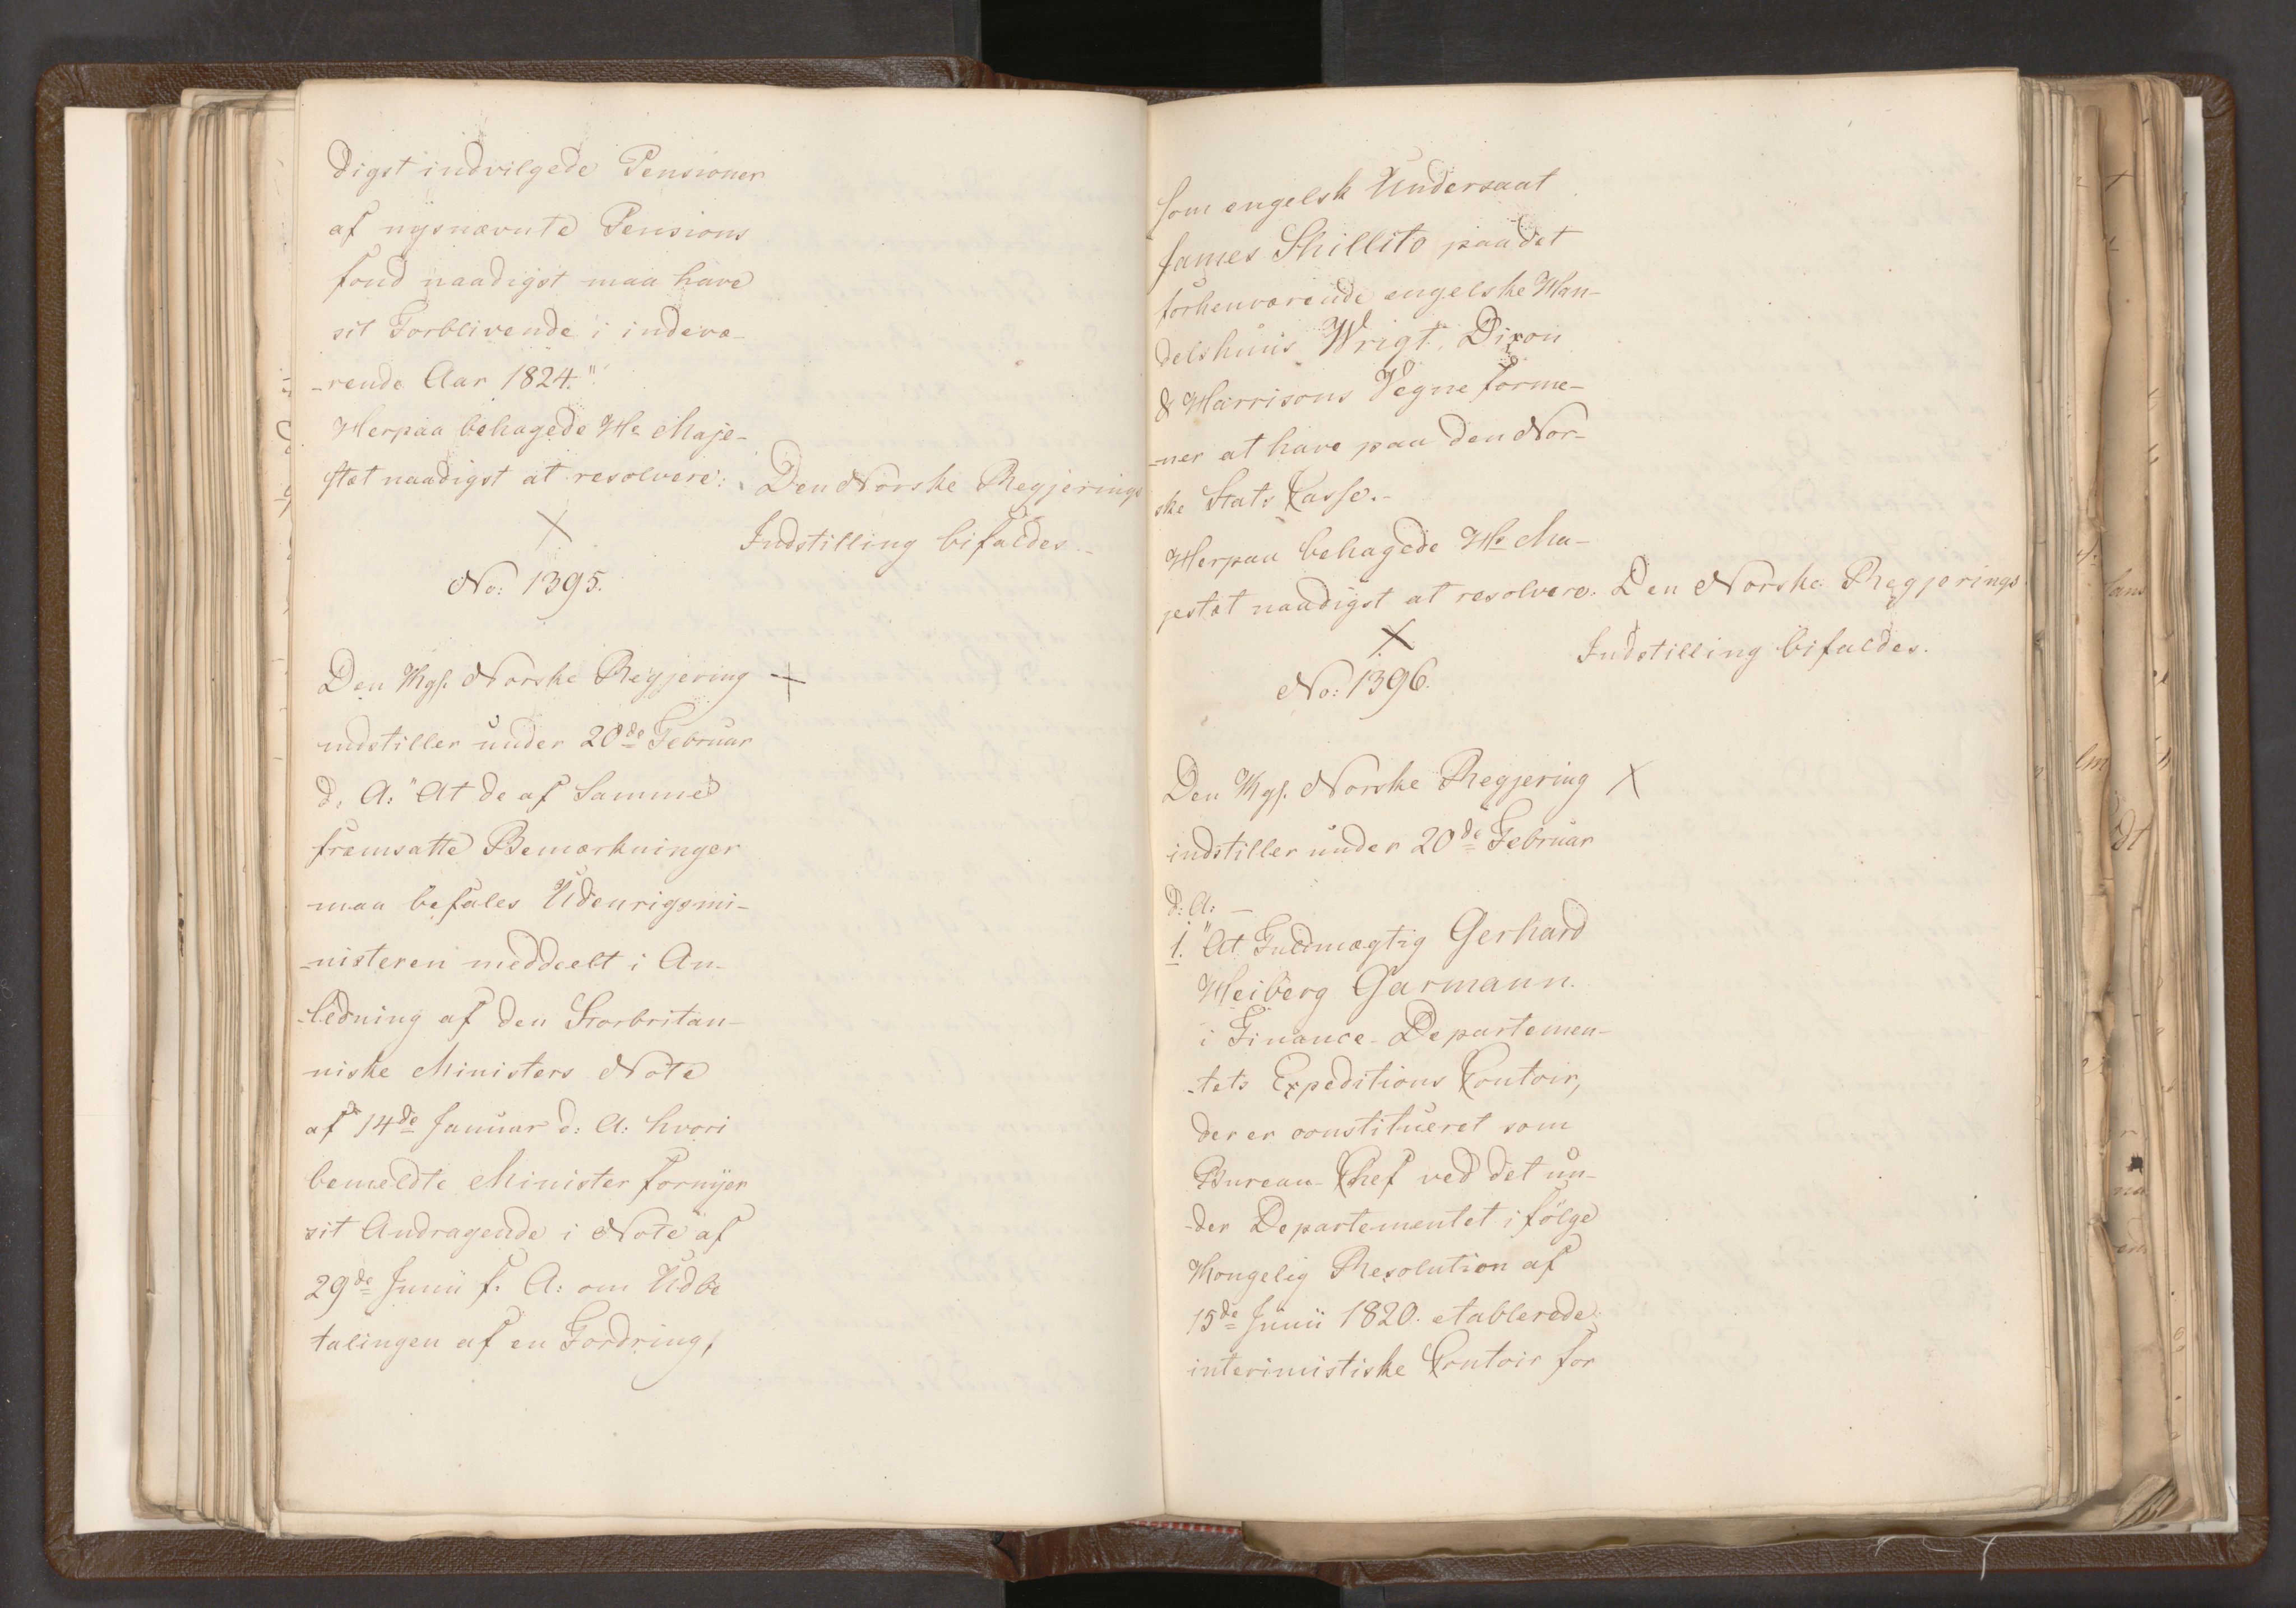 digst indvilgede Pensioner
af nysnævnte Pensions
fond naadigst maa have
sit Forblivende i indevæ-
-rende Aar 1824."
Herpaa behagede Hs Maje-
stæt naadigst at resolvere: Den Norske Regjerings
Indstilling bifaldes.-
No: 1395.
Den Kgl. Norske Regjering
indstiller under 20de Februar
d: A: "At de af Samme
fremsatte Bemærkninger
maa befales Udenrigsmi-
-nisteren meddeelt i An-
-ledning af den Storbritan-
niske Ministers Note
af 14de Januar d: A: hvori
bemeldte Minister fornyer
sit Andragende i Note af
29de Junii f. A: om Udbe
talingen af en Fordring,
som engelsk Undersaat
James Shillito paa det
forhenværende engelske Han-
delshuus Wrigt, Dixon
& Harrisons Vegne forme-
-ner at have paa den Nor-
ske Stats Casse.-
Herpaa behagede Hs Ma-
jestæt naadigst at resolvere: Den Norske Regjerings
Indstilling bifaldes.
No: 1396.
Den Kgl. Norske Regjering
indstiller under 20de Februar
d: A: —
1. "At Fuldmægtig Gerhard
Heiberg Garmann.
i Finance-Departemen-
-tets Expeditions Contoir,
der er constitueret som
Bureau-Chef ved det un-
-der Departementet ifølge
Kongelig Resolution af
15de Junii 1820. etablerede
interimistiske Contoir for